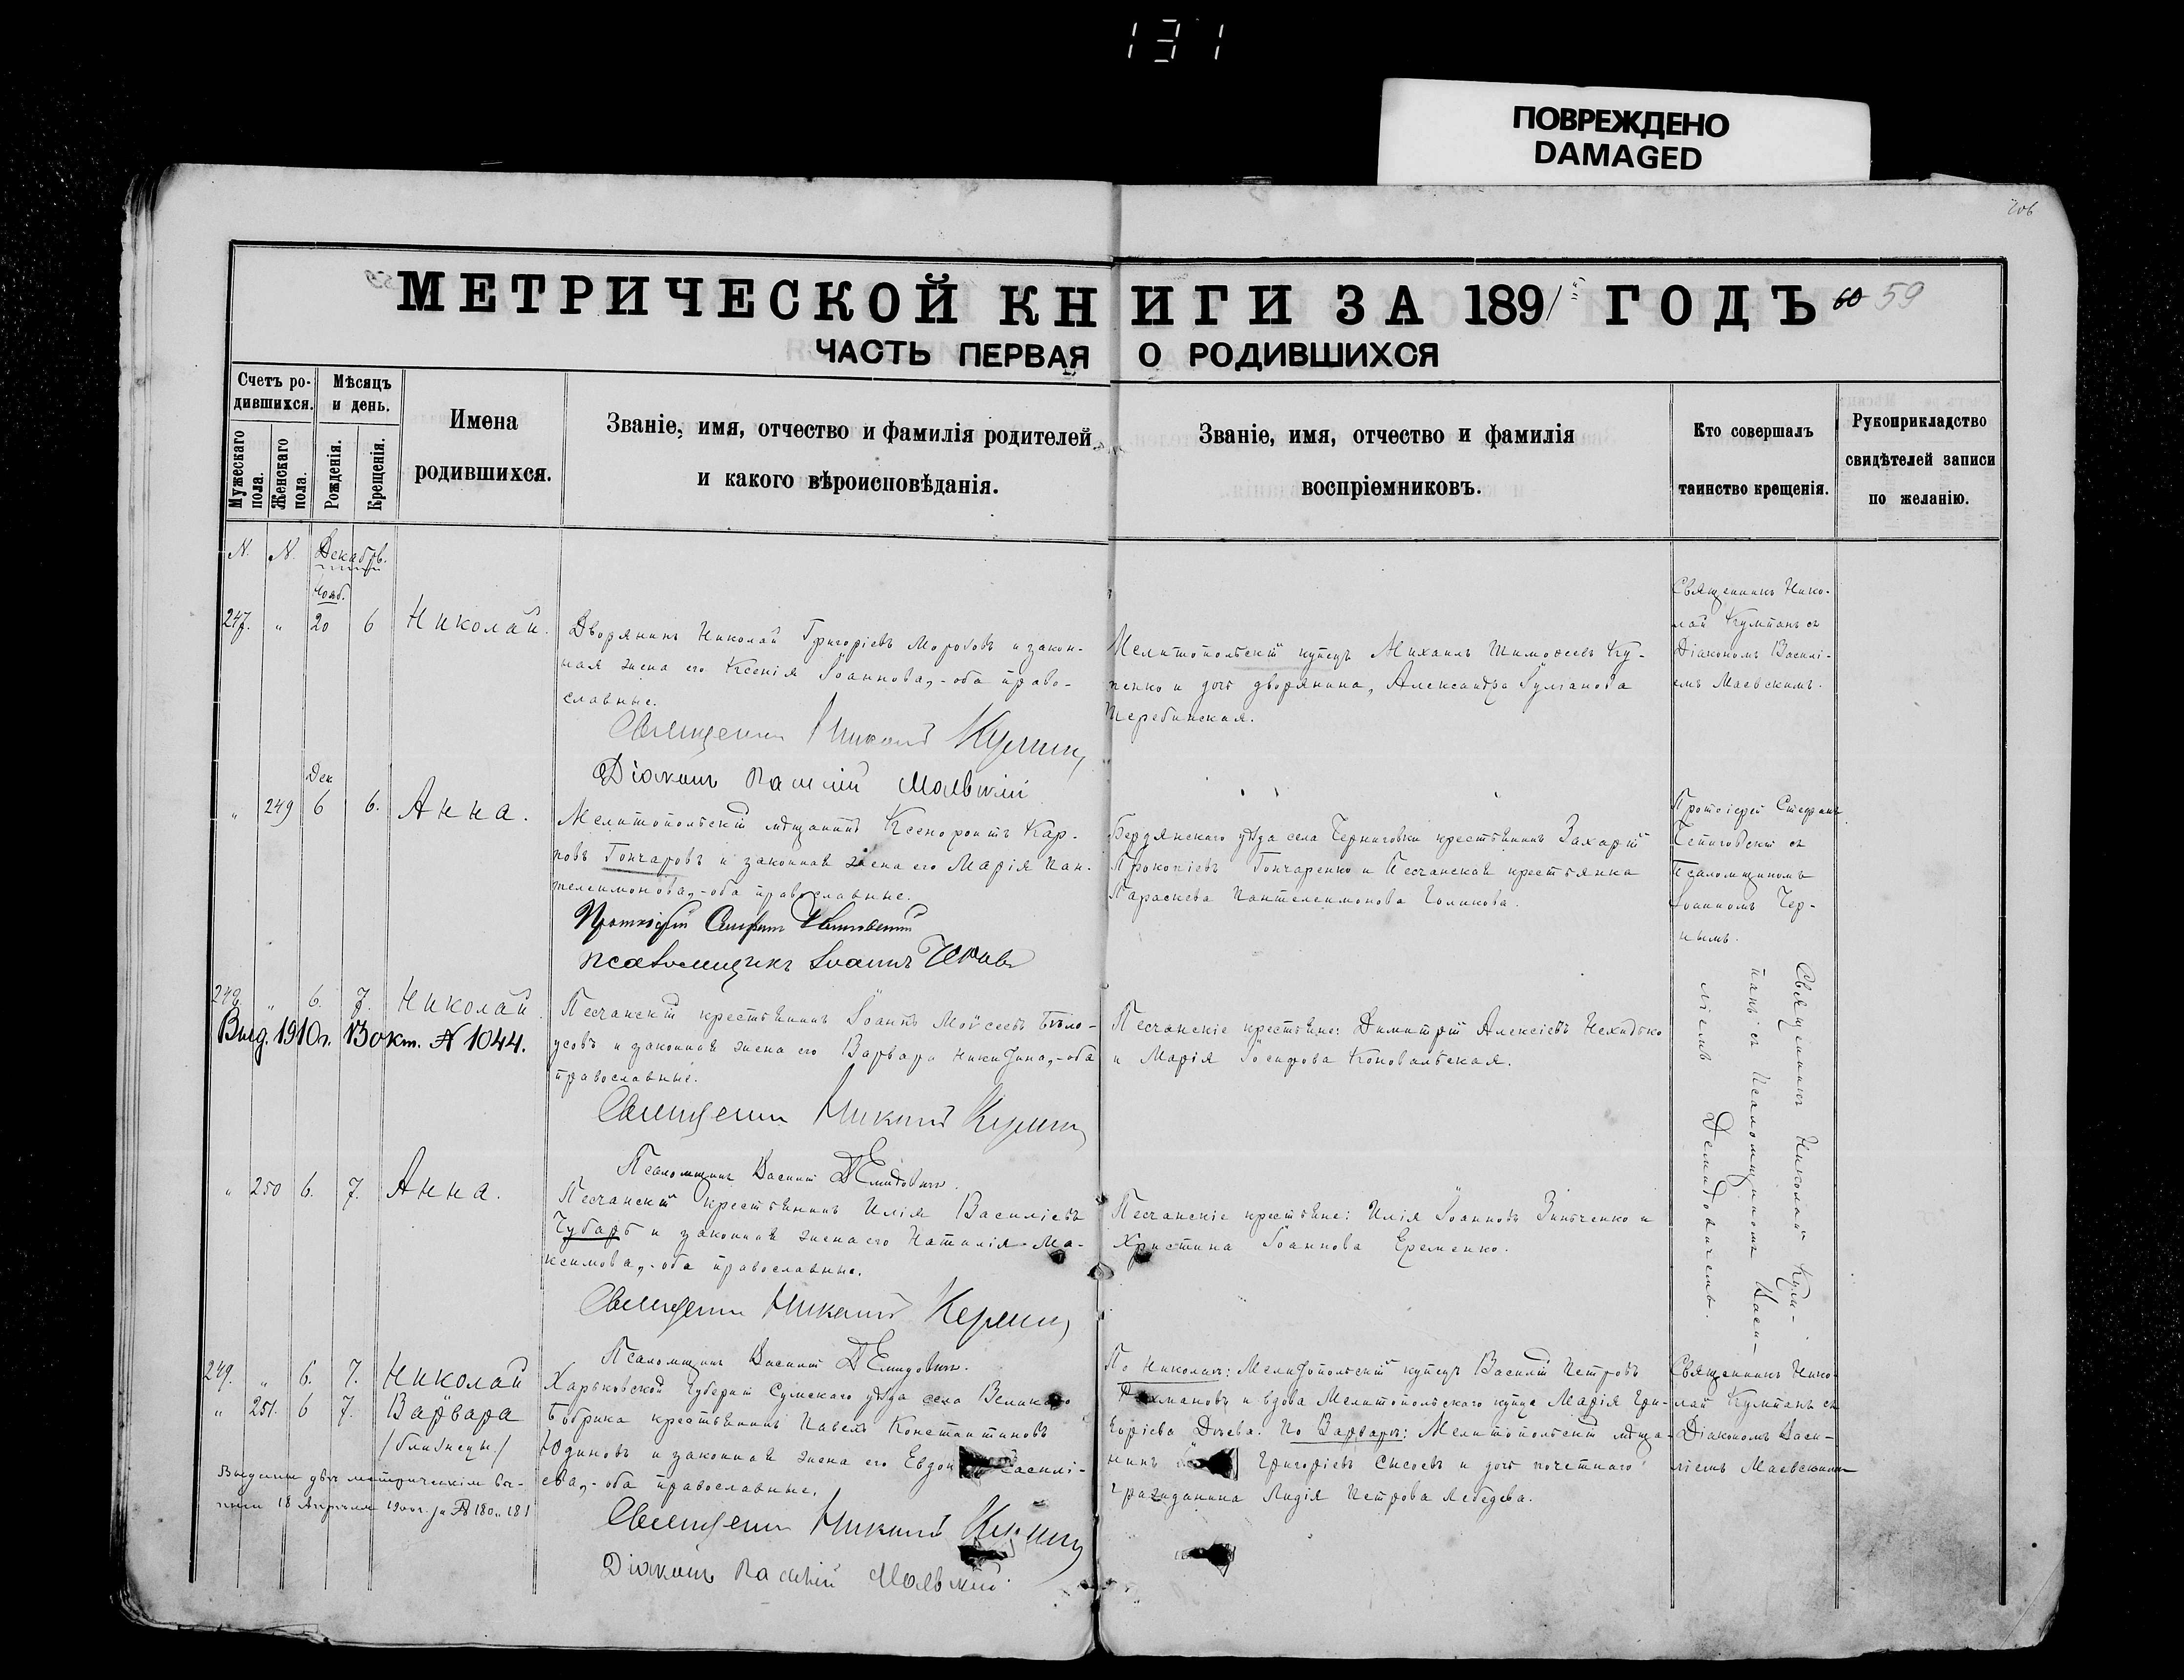 131
ПОВРЕЖДЕНО
DAMAGED
МЕТРИЧЕСКОЙ КНИГИ ЗА 1891 ГОДЪ 60 59
ЧАСТЬ ПЕРВАЯ О РОДИВШИХСЯ
Счетъ родившихся.
Мужескаго пола.
Женскаго пола.
Мѣсяцъ и день.
Рожденія.
Крещенія.
Имена родившихся.
Званіе, имя, отчество и фамилія родителей,
и какого вѣроисповѣданія.
Званіе, имя, отчество и фамилія
воспріемниковъ.
Кто совершалъ
таинство крещенія.
Рукоприкладство
свидѣтелей записи
по желанію.
N. N. Декабрь.
Нояб.
247. " 20 6 Николай.
Дворянинъ Николай Григоріевъ Морозовъ и закон-
ная жена его Ксенія Іоаннова, - оба право-
славные.
Священникъ Николай
Діаконъ Василій Маевскій
Мелитопольскій купецъ Михаилъ Тимоѳеевъ Ку-
пенко и дочь дворянина, Александра
Теребинская.
Священникъ Нико-
лай Кумпанъ съ
Діакономъ Василі-
емъ Маевскимъ.
Дек
" 249 6 6. Анна.
Мелитопольскій мѣщанинъ Ксенофонтъ Кар-
повъ Гончаровъ и законная жена его Марія Пан-
телеимонова, - оба православные.
Протоіерей Стефанъ
Псаломщикъ Іоаннъ
Бердянскаго уѣзда села Черниговки крестьянинъ Захарій
Прокопіевъ Гончаренко и Песчанская крестьянка
Параскева Пантелеимонова Голикова.
Протоіерей Стефанъ
съ
Псаломщикомъ
Іоанномъ Чер-
нымъ.
248. " 6. 7. Николай.
Выд. 1910 г. 13 окт. № 1044.
Песчанскій крестьянинъ Іоаннъ Моисеевъ Бѣло-
усовъ и законная жена его Варвара Никифина, - оба
православные.
Священникъ Николай
Псаломщикъ Василій Демидовичъ.
Песчанскіе крестьяне: Димитрій Алексіевъ Нехидько
и Марія Іосифова Коновальская.
Священникъ Николай Кум-
панъ съ Псаломщикомъ Васи-
ліемъ Демидовичемъ.
" 250 6. 7. Анна.
Песчанскій крестьянинъ Илія Василіевъ
Чубарь и законная жена его Наталія Ма-
ксимова, - оба православные.
Священникъ Николай
Псаломщикъ Василій Демидовичъ.
Песчанскіе крестьяне: Илія Іоанновъ Зинченко и
Христина Іоаннова Еременко.
249. " 6. 7. Николай
" 251. 6 7. Варвара
/близнецы./
Выданы двѣ метрическія вы-
писи 18 Апрѣля 1900 г. за № 180 и 181
Харьковской Губерніи Сумскаго уѣзда села Великаго
Бобрика крестьянинъ Павелъ Константиновъ
Юдиновъ и законная жена его Василі-
ева, - оба православные.
Священникъ Николай
Діаконъ Василій Маевскій
По Николаѣ: Мелитопольскій купецъ Василій Петровъ
и вдова Мелитопольскаго купца Марія Гри-
горіева. По Варварѣ: Мелитопольскій мѣща-
нинъ Григоріевъ Сысоевъ и дочь почетнаго
гражданина Лидія Петрова Лебедева.
Священникъ Нико-
лай Кумпанъ съ
Діакономъ Васи-
ліемъ Маевскимъ